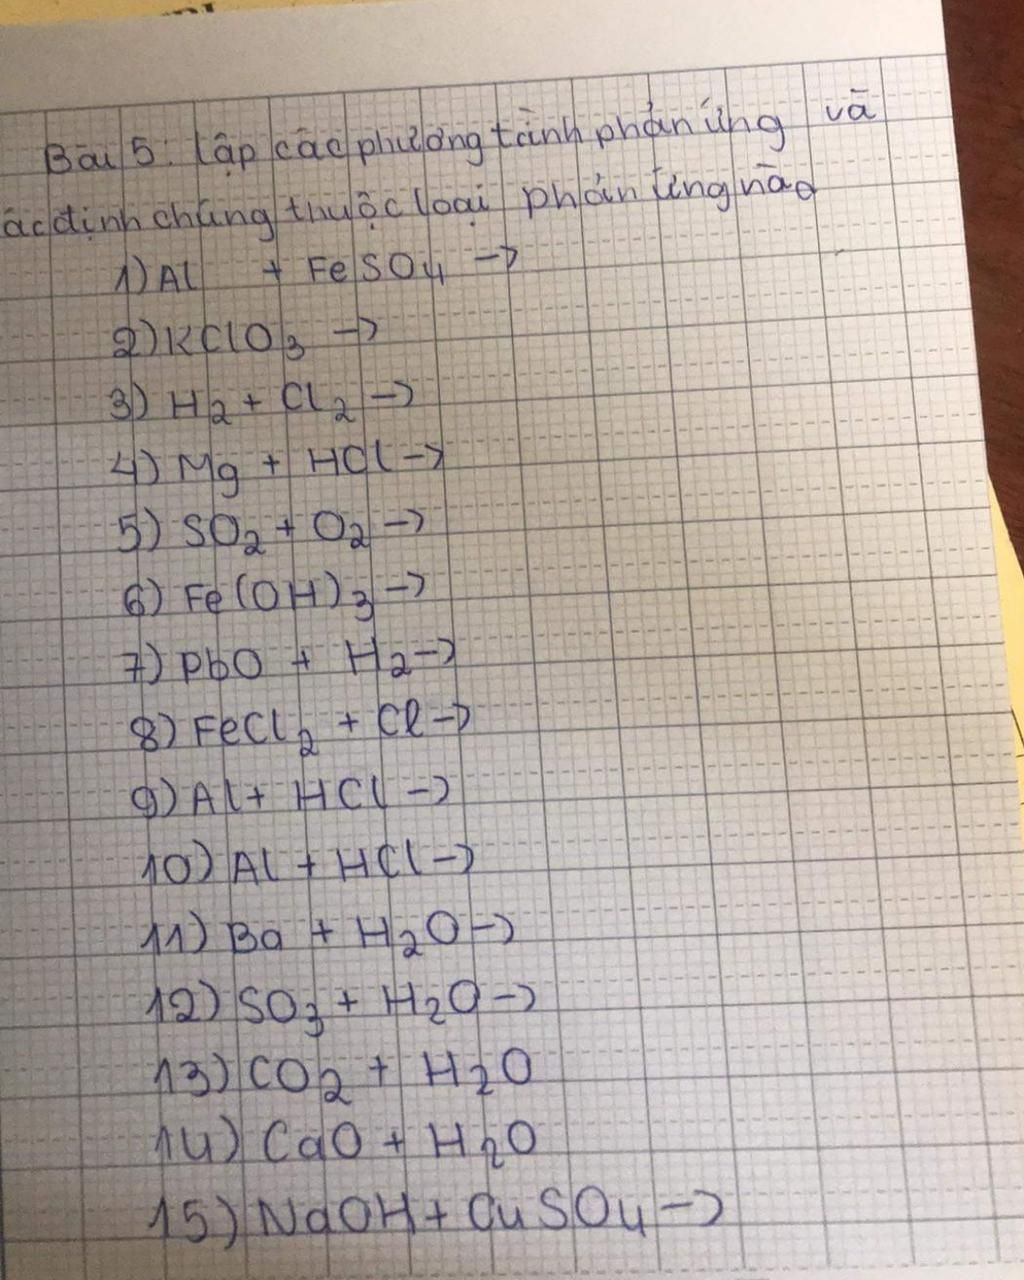 Bài 5: Lập các phương tành phản ứng và
ác định chúng thuộc loại phản ứng nào
1) Al + FeSO4 ->
2) KClO3 ->
3) H2 + Cl2 ->
4) Mg + HCl ->
5) SO2 + O2 ->
6) Fe(OH)3 ->
7) PbO + H2 ->
8) FeCl2 + Cl ->
9) Al + HCl ->
10) Al + HCl ->
11) Ba + H2O ->
12) SO3 + H2O ->
13) CO2 + H2O
14) CaO + H2O
15) NaOH + CuSO4 ->